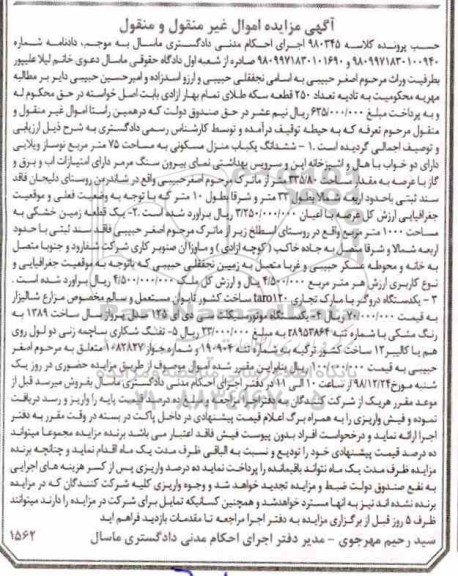 آگهی مزایده اموال غیر منقول و منقول
حسب پرونده کلاسه ۹۸۰۳۴۵ اجرای احکام مدنی دادگستری ماسال به موجب دادنامه شماره
۹۸۰۹۹۷۱۸۳۰۱۰۰۹۴۰ و ۹۸۰۹۹۷۱۸۳۰۱۰۱۶۹۰ صادره از شعبه اول دادگاه حقوقی ماسال دعوی خانم لیلا علیپور
بطرفیت وراث مرحوم اصغر حبیبی به اسامی نجفقلی حبیبی و ارزو اسدزاده و امیرحسین حبیبی دایر بر مطالبه
مهریه محکومیت به تادیه تعداد ۲۵۰ قطعه سکه طلای تمام بهار ازادی بابت اصل خواسته در حق محکوم له
و به پرداخت مبلغ ۶۳۵/۰۰۰/۰۰۰ ریال نیم عشر در حق صندوق دولت که درهمین راستا اموال غیر منقول و
منقول مرحوم تعرفه که به حیطه توقیف درآمده و توسط کارشناس رسمی دادگستری به شرح ذیل ارزیابی
و توصیف اجمالی گردیده است. ۱ – ششدانگ یکباب منزل مسکونی به مساحت ۷۵ متر مربع نوساز ویلایی
دارای دو خواب با هال و اشپزخانه اپن و سرویس بهداشتی نمای بیرون سنگ مرمر دارای امتیازات اب و برق و
گاز با عرصه به مقدار مساحت ۳۳۵/۸۰ متر از ماترک مرحوم اصغر حبیبی واقع در شاندرمن روستای دلیجان فاقد
سند ثبتی باحدود اربعه شمالا بطول ۳۳ متر و شرقا بطول ۱۰ متر که با توجه به وضعیت فعلی و موقعیت
جغرافیایی ارزش کل عرصه با اعیان ۳/۲۵۰/۰۰۰/۰۰۰ ریال برآورد شده است. ۲- یک قطعه زمین خشکی به
مساحت ۱۰۰۰ متر مربع واقع در روستای اسطلخ زیر از ماترک مرحوم اصغر حبیبی فاقد سند ثبتی با حدود
اربعه شمالا و شرقا متصل به جاده خاکی (کوچه ازادی) و ماوراآن صنوبر کاری شرکت شفارود و جنوبا متصل
به خانه و محوطه عسکر حبیبی و غربا متصل به زمین نجفقلی حبیبی که باتوجه به موقعیت جغرافیایی و
نوع کاربری ارزش هر متر مربع ۴/۵۰۰/۰۰۰ ریال و ارزش کل ملک ۴/۵۰۰/۰۰۰/۰۰۰ ریال برآورد شده است.
۳ – یکدستگاه دروگر با مارک تجاری taro۱۲۰ ساخت کشور تایوان مستعمل و سالم مخصوص مزارع شالیزار
به قیمت ۷۰/۰۰۰/۰۰۰ ریال ۴- یکدستگاه موتورسیکلت سی دی ای ۱۲۵ مدل پرواز سال ساخت ۱۳۸۹ به
رنگ مشکی با شماره تنه ۸۹۵۳۸۶۴ به مبلغ ۲۳/۰۰۰/۰۰۰ ریال ۵- تفنگ شکاری ساچمه زنی دو لول روی
هم با کالیبر ۱۲ ساخت کشور ترکیه به شماره تنه ۱۹۰۹۰۴ و شماره جواز ۱۰۸۲۸۲۷ متعلق به مرحوم اصغر
حبیبی به قیمت ریال بنابراین مقرر شده اموال موصوف از طریق مزایده حضوری در روز یک
شنبه مورخ ۹۸/۱۲/۲۴ از ساعت ۱۰ الی ۱۱ در دفتر اجرای احکام مدنی دادگستری ماسال بفروش میرسد قبل از
موعد مقرر هریک از شرکت کنندگان به دفتر اجرا مراجعه و ده درصد قیمت پایه را واریز و رسد دریافت
نموده و فیش واریزی را به همراه برگ اعلام قیمت پیشنهادی در داخل پاکت در بسته در وقت مقرر به دفتر
اجرا ارائه نماید و درخواست افراد بدون پیوست فیش فاقد اعتبار می باشد برنده مزایده مجموعا میتواند
ده درصد قیمت پیشنهادی خود را تودیع و نسبت به الباقی ظرف مدت یک ماه اقدام نماید و چنانچه برنده
مزایده ظرف مدت یک ماه نتواند باقیمانده را پرداخت نماید ده درصد واریزی پس از کسر هزینه های اجرایی
به نفع صندوق دولت ضبط و مزایده تجدید خواهد شد و وجوه واریزی کلیه شرکت کنندگان که در مزایده
برنده نشده اند نیز به انها مسترد خواهدشد و همچنین کسانیکه تمایل برای شرکت در مزایده را دارند میتوانند
ظرف ۵ روز قبل از برگزاری مزایده به دفتر اجرا مراجعه تا مقدمات بازدید فراهم اید
سید رحیم مهرجوی – مدیر دفتر اجرای احکام مدنی دادگستری ماسال ۱۵۶۲